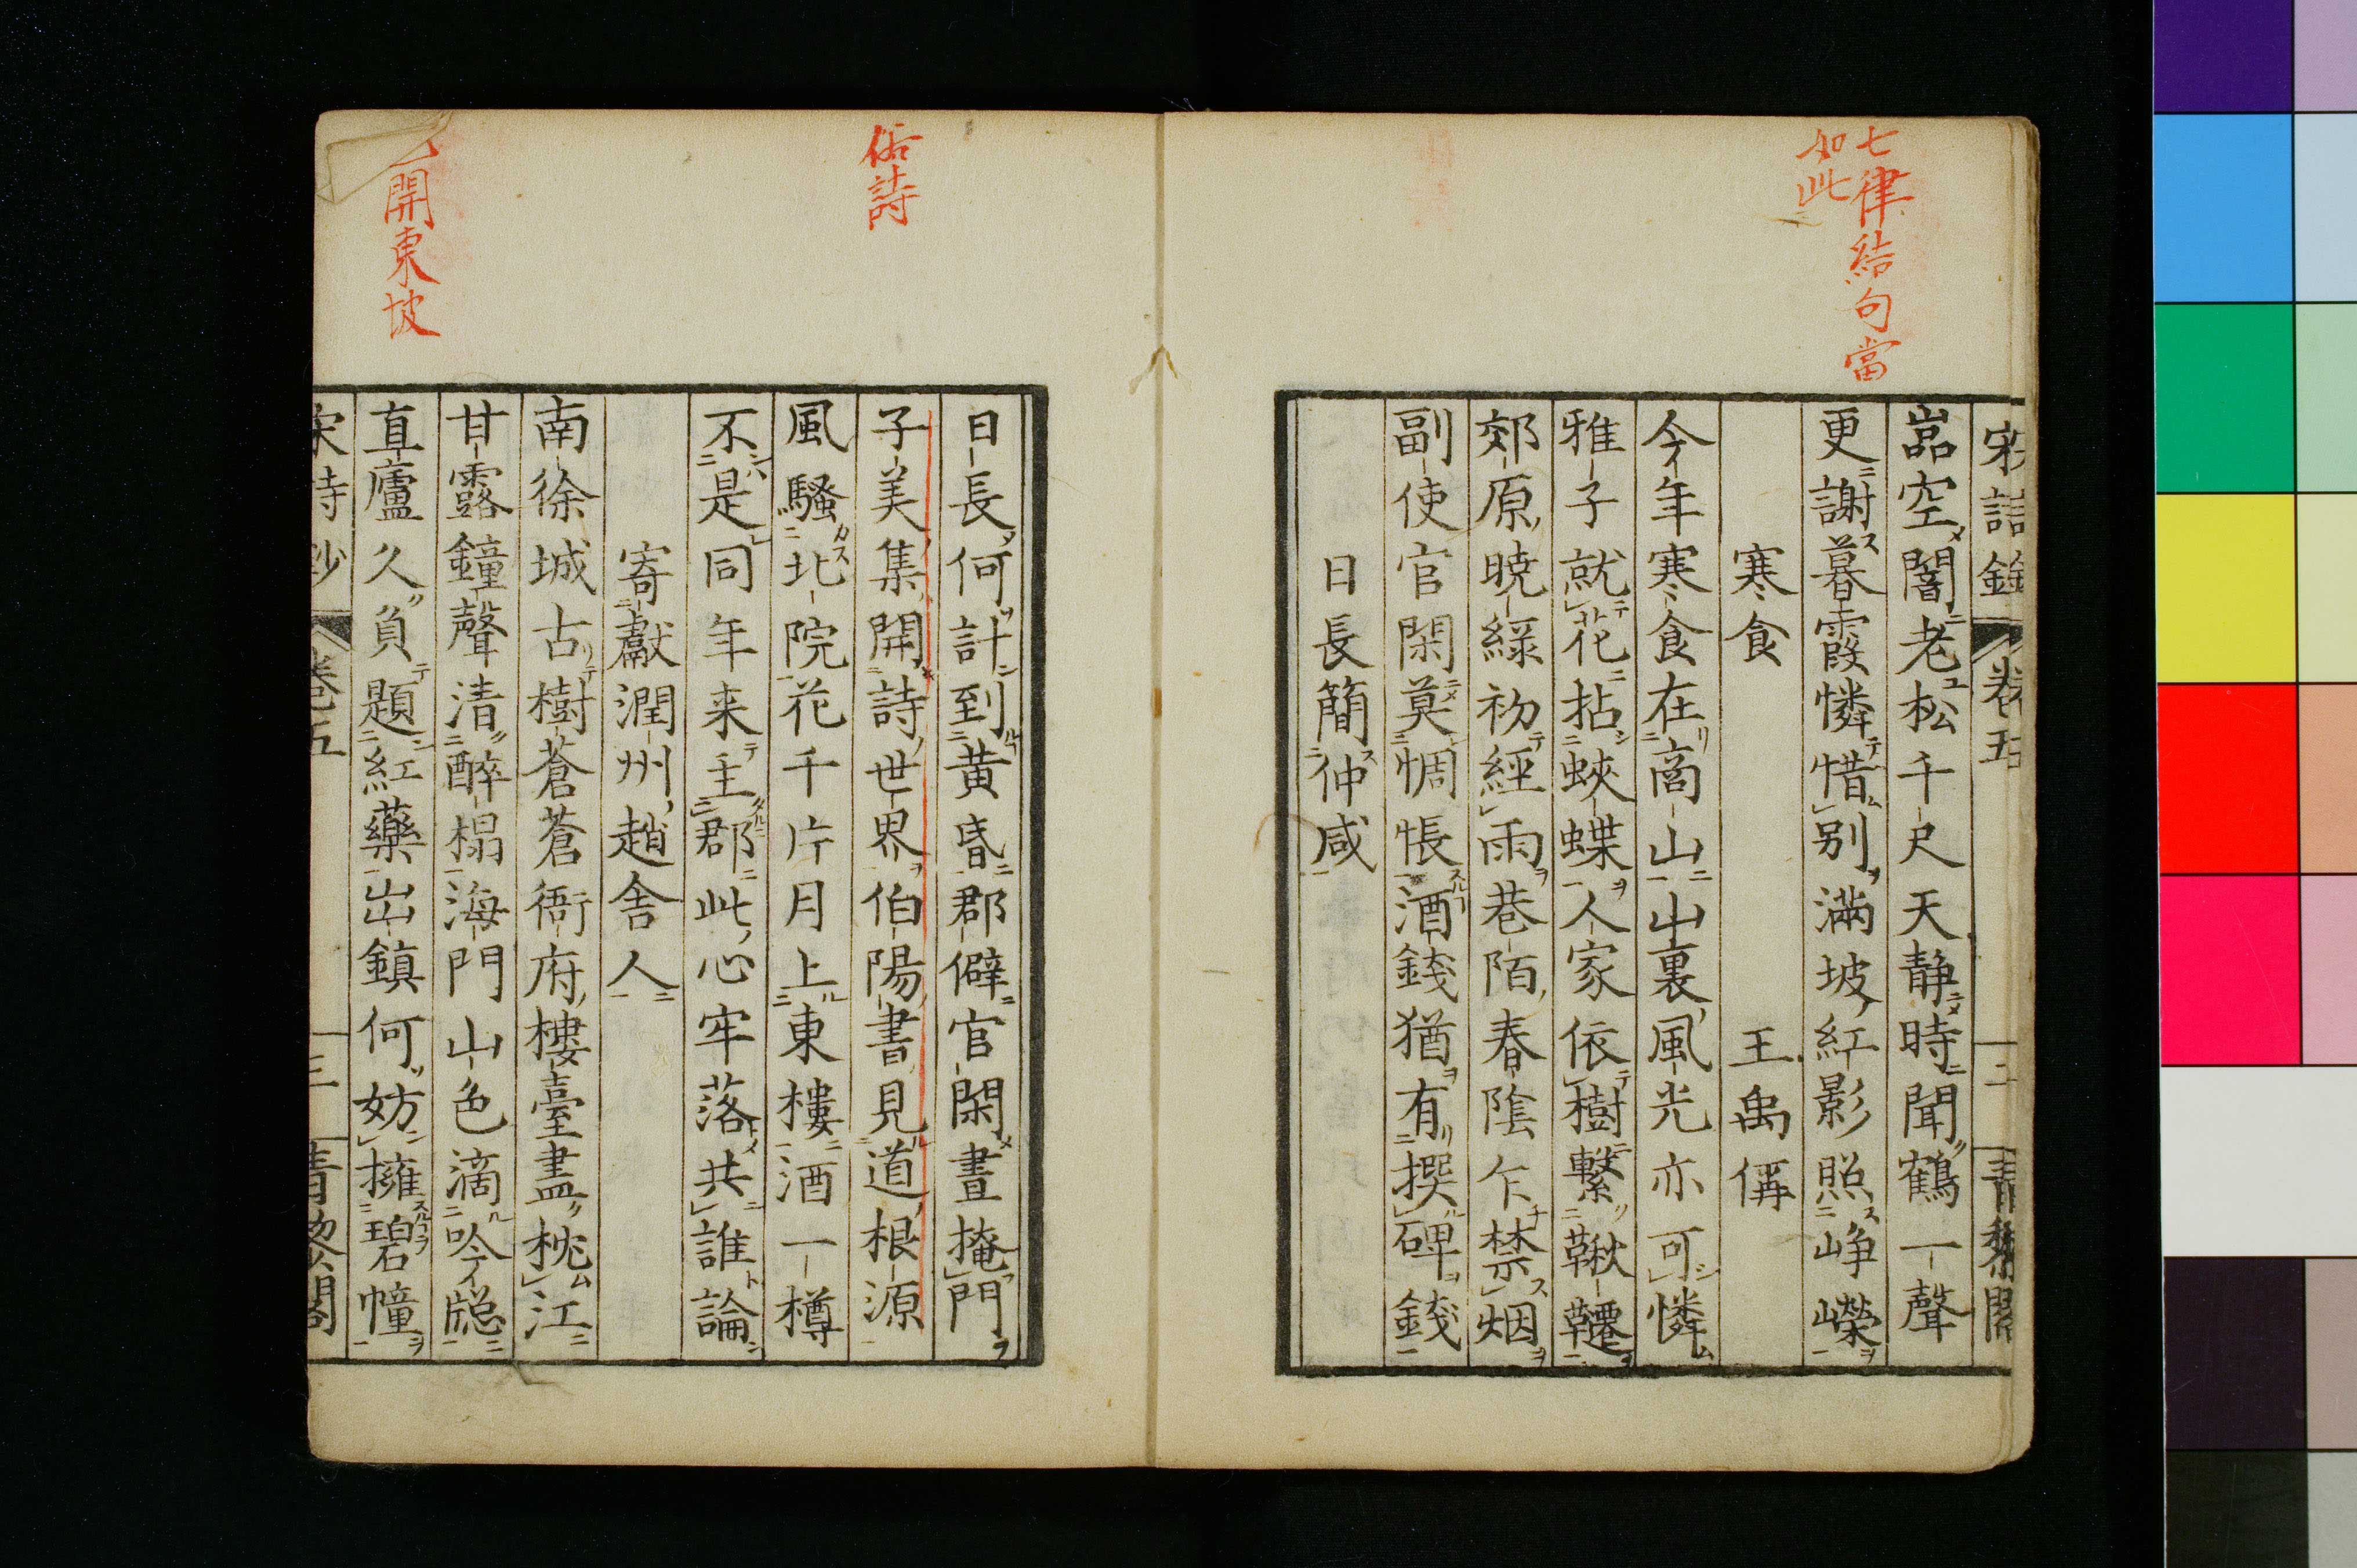 七律結句當
如此
宋詩鈔 卷五 二 青藜閣
嵓空闇老松千尺天靜時聞鶴一聲
更謝暮霞憐惜別滿坡紅影照崢嶸
寒食 王禹偁
今年寒食在商山山裏風光亦可憐
雅子就花拈蛺蝶人家依樹繫鞦韆
郊原曉綠初經雨巷陌春陰乍禁烟
副使官閑莫惆悵酒錢猶有撰碑錢
日長簡仲咸
俗詩
日長何計到黃昏郡僻官閑晝掩門
子美集開詩世界伯陽書見道根源
風騷北院花千片月上東樓酒一樽
不是同年来主郡此心牢落共誰論
寄獻潤州趙舍人
開東坡
南徐城古樹蒼蒼衙府樓臺盡枕江
甘露鐘聲清醉榻海門山色滴吟牎
直廬久負題紅藥出鎮何妨擁碧幢
宋詩鈔 卷五 三 青藜閣